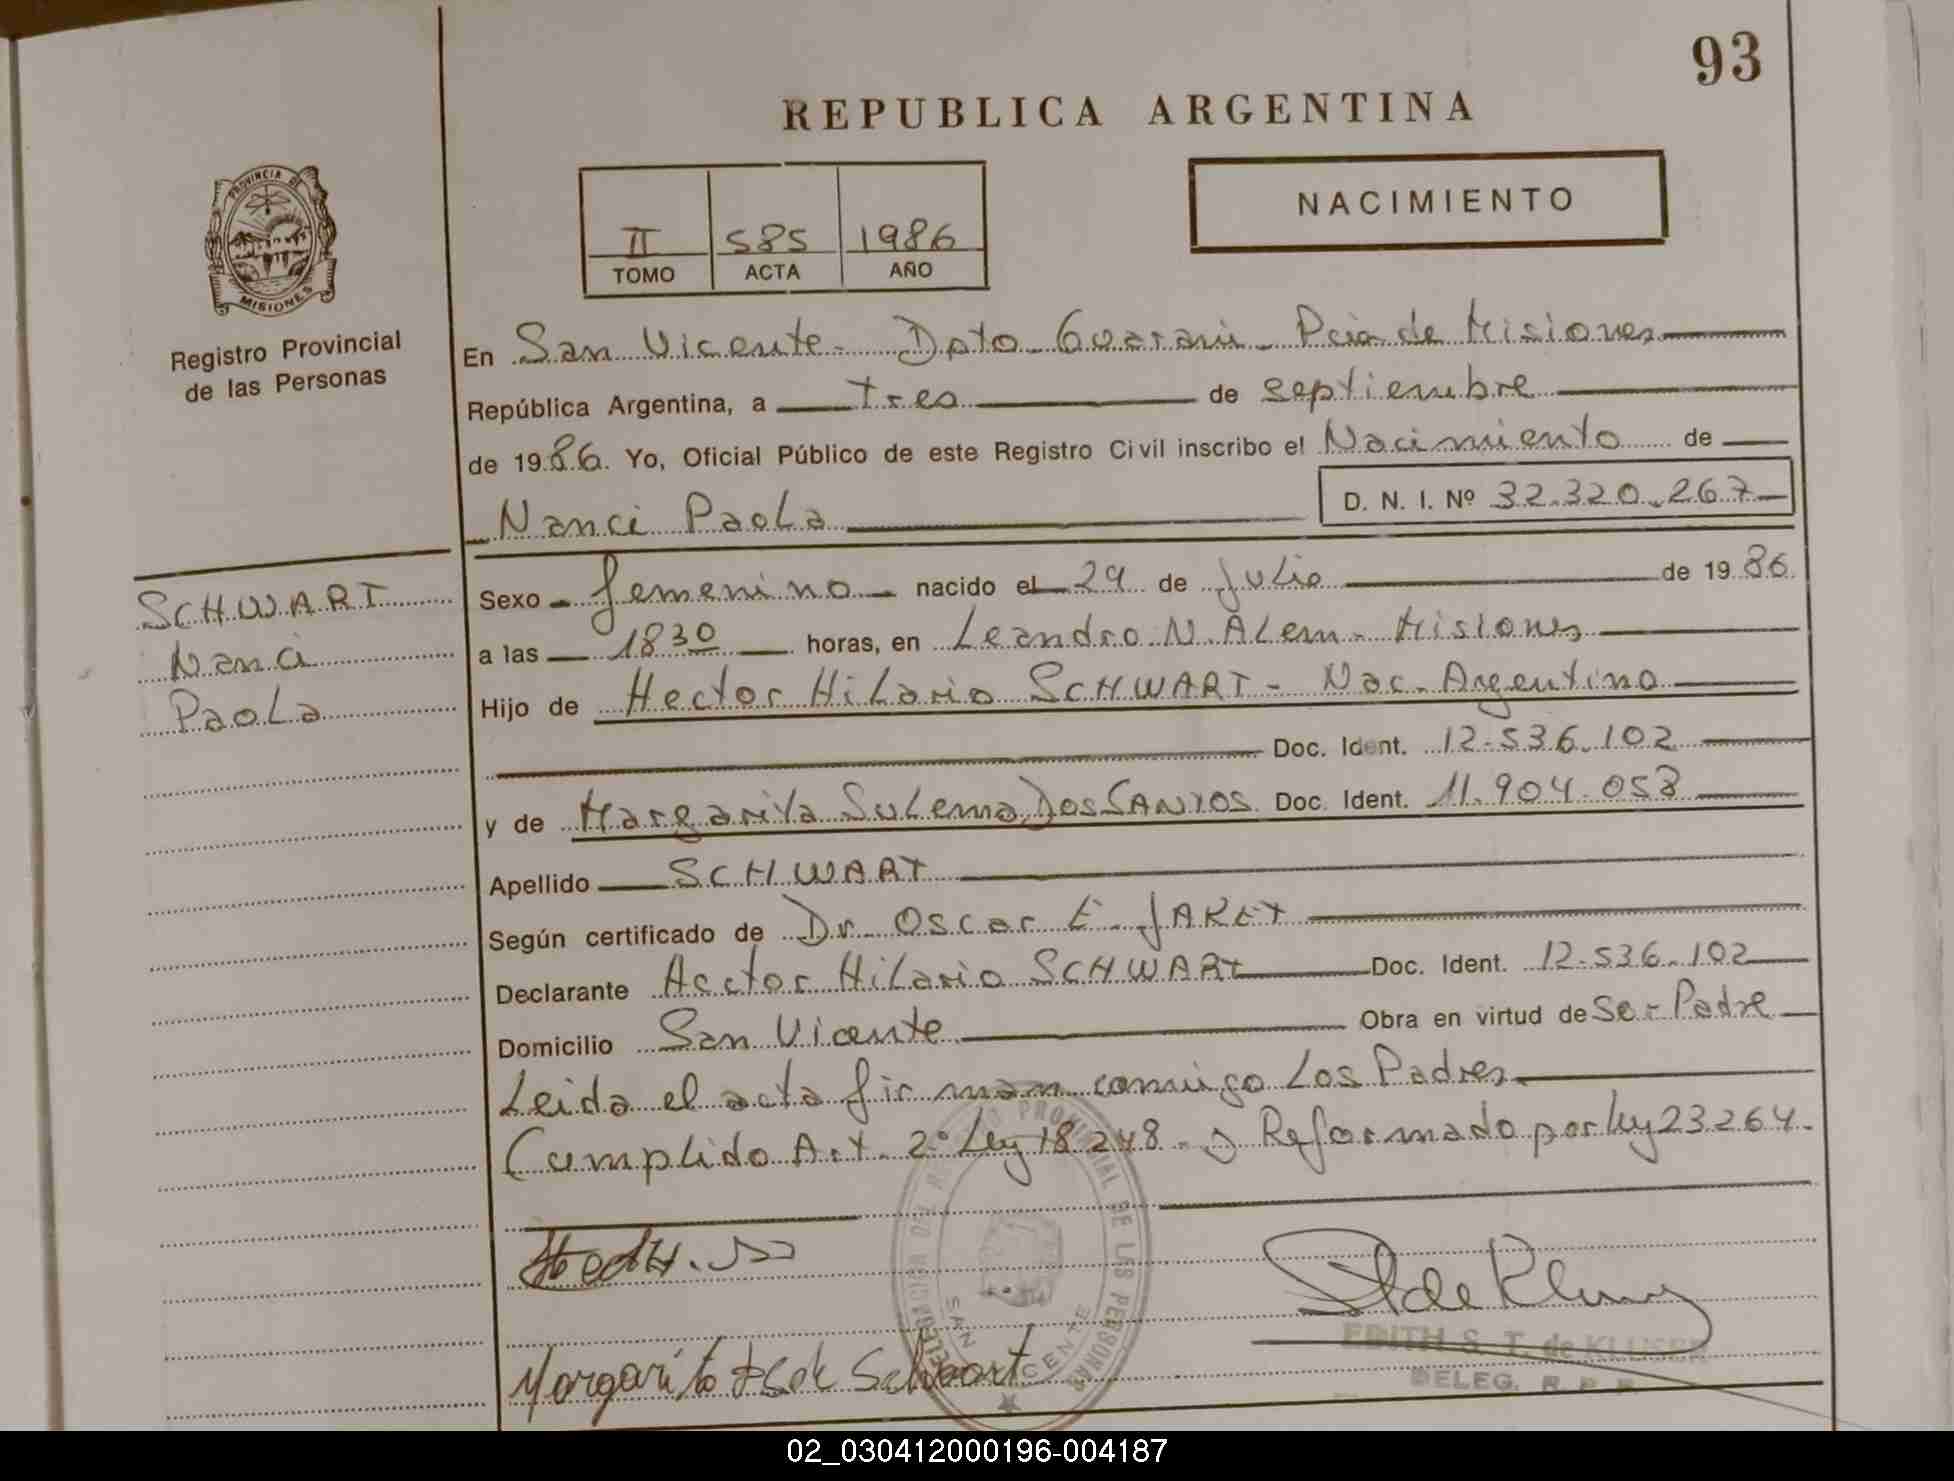 93
REPUBLICA ARGENTINA
NACIMIENTO
II 585 1986
TOMO ACTA AÑO
PROVINCIA DE
MISIONES
Registro Provincial
de las Personas
SCHWART
Nanci
Paola
En San Vicente - Dpto Guarani - Pcia de Misiones
República Argentina, a tres de septiembre
de 1986. Yo, Oficial Público de este Registro Civil inscribo el Nacimiento de
Nanci Paola D. N. I. Nº 32.320.267
Sexo femenino nacido el 29 de Julio de 1986
a las 18 30 horas, en Leandro N. Alem - Misiones
Hijo de Hector Hilario SCHWART - Nac. Argentino
Doc. Ident. 12.536.102
y de Margarita Sulema Dos SANTOS Doc. Ident. 11.904.058
Apellido SCHWART
Según certificado de Dr. Oscar E.
Declarante Hector Hilario SCHWART Doc. Ident. 12.536.102
Domicilio San Vicente Obra en virtud de Ser Padre
Leida el acta firman conmigo Los Padres
Cumplido Art. 2º Ley 18248 - y Reformado por Ley 23264.
DELEGACION DEL REGISTRO PROVINCIAL DE LAS PERSONAS
SAN VICENTE
Margarita Schwart
EDITH S. T. de KLUSER
DELEG. R. P. P.
02_030412000196-004187